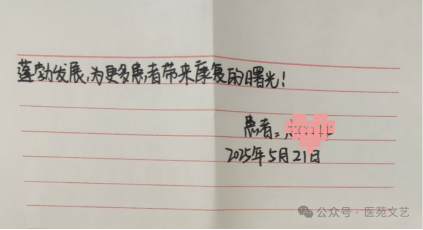 蓬勃发展,为更多患者带来康复的曙光!
患者:
2025年5月21日
公众号·医苑文艺